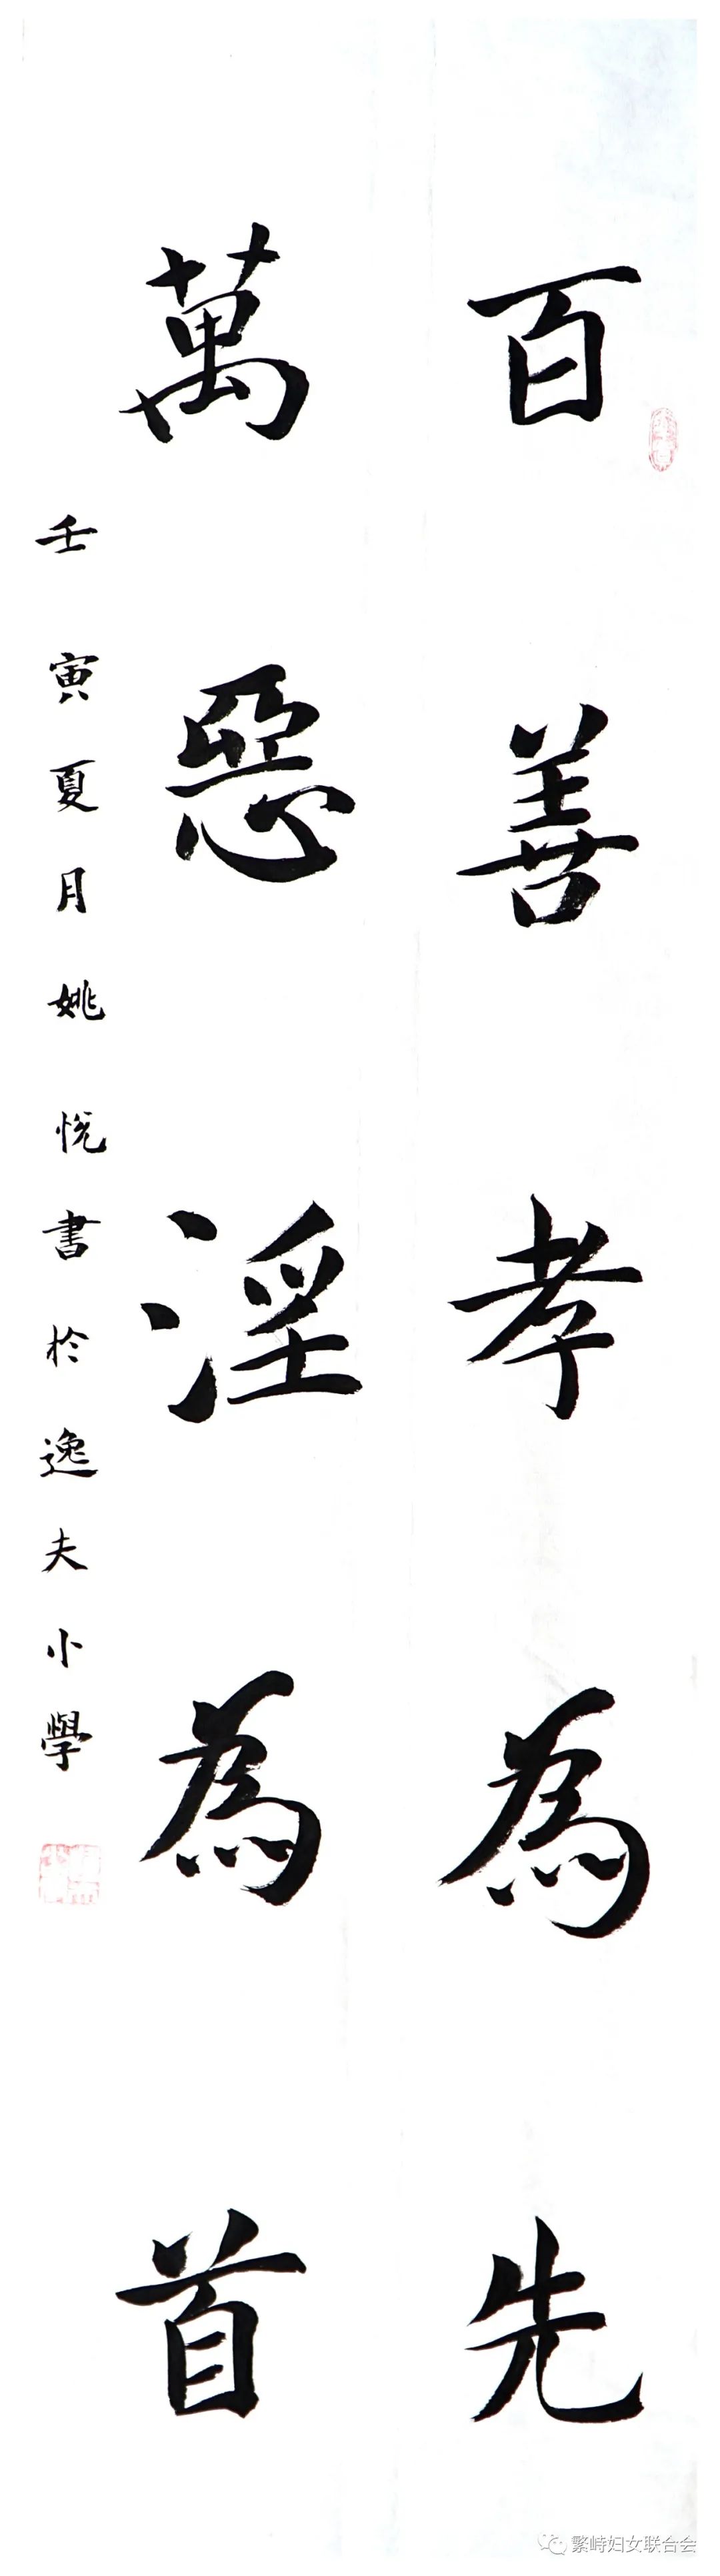 百善孝為先
萬惡淫為首
壬寅夏月姚悦書於逸夫小學
繁峙妇女联合会